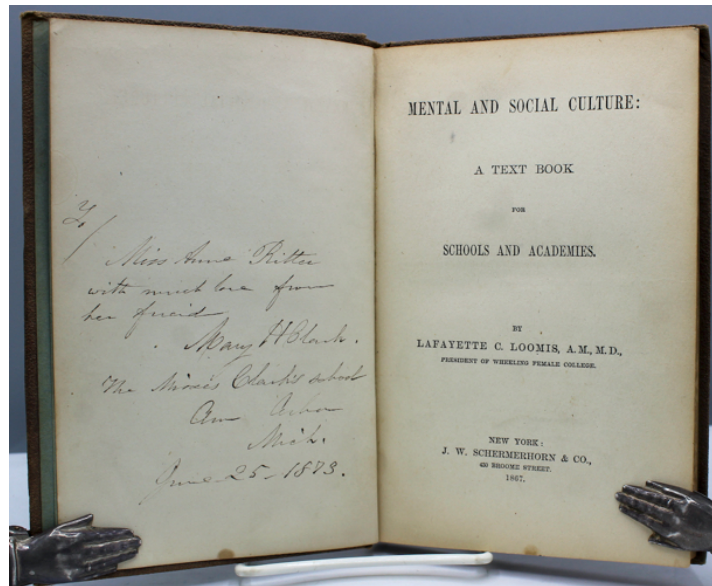 To
Miss Anne Ritter
with much love from
her friend
Mary H Clark.
The Misses Clark's school
Ann Arbor
Mich.
June 25 - 1873.
MENTAL AND SOCIAL CULTURE:
A TEXT BOOK
FOR
SCHOOLS AND ACADEMIES.
BY
LAFAYETTE C. LOOMIS, A.M., M.D.,
PRESIDENT OF WHEELING FEMALE COLLEGE.
NEW YORK:
J. W. SCHERMERHORN & CO.,
BROOME STREET.
1867.